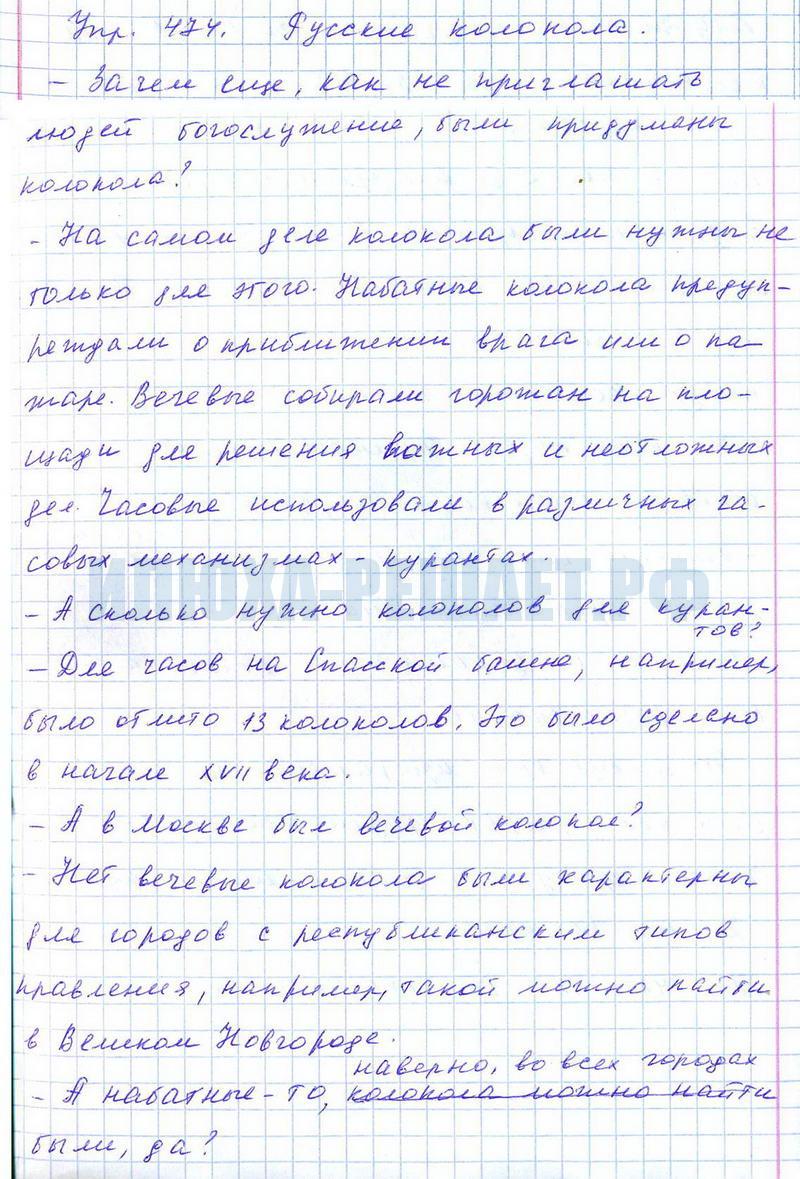 Упр. 474. Русские колокола.
- Зачем еще, как не приглашать
людей богослужение, были придуманы
колокола?
- На самом деле колокола были нужны не
только для этого. Набатные колокола предуп-
реждали о приближении врага или о па-
жаре. Вечевые собирали горожан на пло-
щади для решения важных и неотложных
дел. Часовые использовали в различных ча-
совых механизмах - курантах.
ИЛЮХА-РЕШАЕТ.РФ
- А сколько нужно колоколов для куран-
тов?
- Для часов на Спасской башне, например,
было отлито 13 колоколов. Это было сделано
в начале XVII века.
- А в Москве был вечевой колокол?
- Нет вечевые колокола были характерны
для городов с республиканским типов
правления, например, такой можно найти
в Великом Новгороде.
наверно, во всех городах
- А набатные-то, колокола можно найти
были, да?